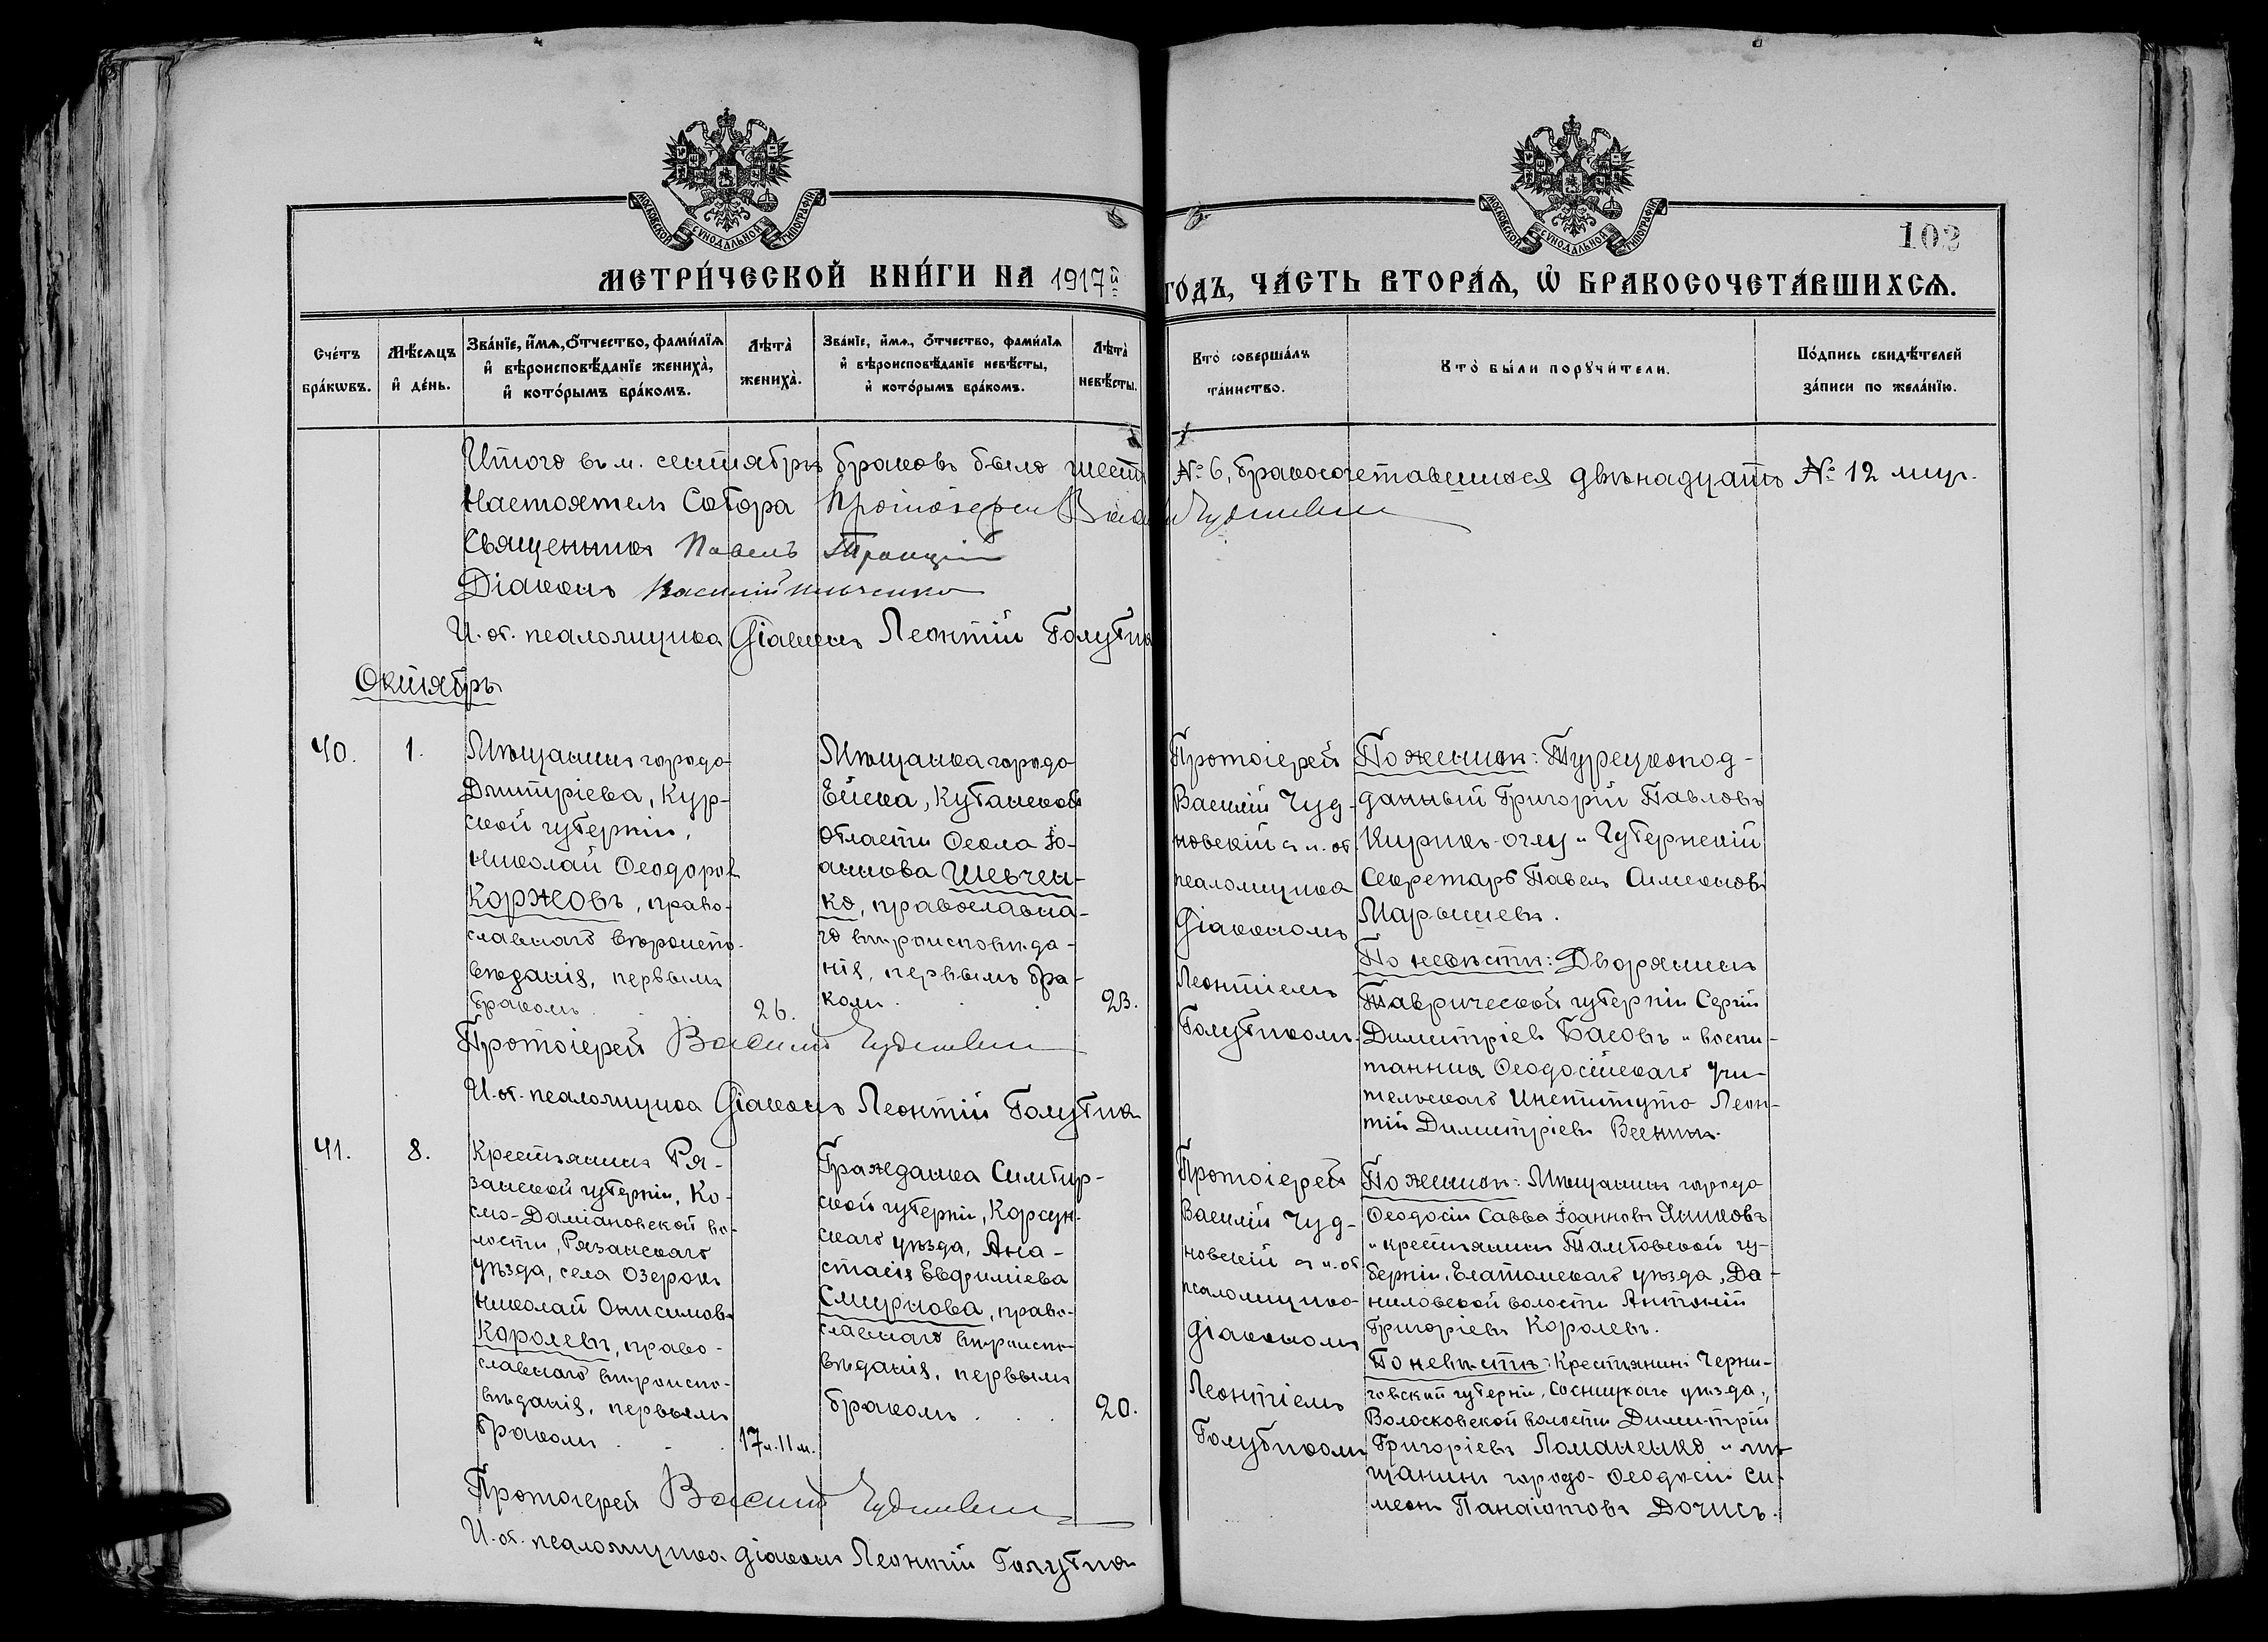 МОСКОВСКОЙ СѴНОДАЛЬНОЙ ТИПОГРАФІИ
МОСКОВСКОЙ СѴНОДАЛЬНОЙ ТИПОГРАФІИ
102
МЕТРИ́ЧЕСКОЙ КНИ́ГИ НА 1917й
ГО́ДЪ, ЧА́СТЬ ВТОРА́Ѧ, Ѿ БРАКОСОЧЕТА́ВШИХСѦ.
Сче́тъ
бра́кѡвъ.
Мѣ́сѧцъ
и҆ де́нь.
Зва́нїе, и҆́мѧ, ѻ҆́тчество, фами́лїѧ
и҆ вѣроисповѣ́данїе жениха̀,
и҆ кото́рымъ бра́комъ.
Лѣта̀
жениха̀.
Зва́нїе, и҆́мѧ, ѻ҆́тчество, фами́лїѧ
и҆ вѣроисповѣ́данїе невѣ́сты,
и҆ кото́рымъ бра́комъ.
Лѣта̀
невѣ́сты.
Кто̀ соверша́лъ
та́инство.
Кто̀ бы́ли порꙋчи́тели.
По́дпись свидѣ́телей
за́писи по жела́нїю.
Итого въ м. сентябрѣ браковъ было шесть № 6, бракосочетавшихся двѣнадцать № 12 лиц.
Настоятель Собора Протоіерей Василій Чудновскій
Священникъ Павелъ Троицкій
Діаконъ Василій
И. об. псаломщика Діаконъ Леонтій Голубник
Октябрь
40.
1.
Мѣщанинъ города
Дмитріева, Кур-
ской губерніи,
Николай Ѳеодоровъ
Коржовъ, право-
славнаго вѣроиспо-
вѣданія, первымъ
бракомъ.
26.
Мѣщанка города
Ейска, Кубанской
области Ѳекла Іо-
аннова Шевчен-
ко, православна-
го вѣроисповѣда-
нія, первымъ бра-
комъ.
23.
Протоіерей
Василій Чуд-
новскій съ и. об.
псаломщика
Діакономъ
Леонтіемъ
Голубникомъ.
По женихѣ: Турецкопод-
данный Григорій Павловъ
Кирикъ-оглу и Губернскій
Секретарь Павелъ Симеоновъ
Марышевъ.
По невѣстѣ: Дворянинъ
Таврической губерніи Сергій
Димитріевъ Басовъ и воспи-
танникъ Ѳеодосійскаго Учи-
тельскаго Института Леон-
тій Димитріевъ
Протоіерей Василій Чудновскій
И. об. псаломщика Діаконъ Леонтій Голубник
41.
8.
Крестьянинъ Ря-
занской губерніи, Ко-
смо-Даміановской во-
лости, Рязанскаго
уѣзда, села Озерокъ
Николай Онисимовъ
Королевъ, право-
славнаго вѣроиспо-
вѣданія, первымъ
бракомъ.
17 л. 11 м.
Гражданка Симбир-
ской губерніи, Корсун-
скаго уѣзда, Ана-
стасія Евфиміева
Смирнова, право-
славнаго вѣроиспо-
вѣданія, первымъ
бракомъ.
20.
Протоіерей
Василій Чуд-
новскій съ и. об.
псаломщика
діакономъ
Леонтіемъ
Голубникомъ
По женихѣ: Мѣщанинъ города
Ѳеодосіи Савва Іоанновъ Яниковъ
и крестьянинъ Тамбовской гу-
берніи, Елатомскаго уѣзда, Да-
ниловской волости Антоній
Григоріевъ Королевъ.
По невѣстѣ: Крестьянинъ Черни-
говской губерніи, Сосницкаго уѣзда,
Волосковской волости Димитрій
Григоріевъ Ломаненко и мѣ-
щанинъ города Ѳеодосіи Си-
меонъ Панаіотовъ Дочисъ.
Протоіерей Василій Чудновскій
И. об. псаломщика діаконъ Леонтій Голубник